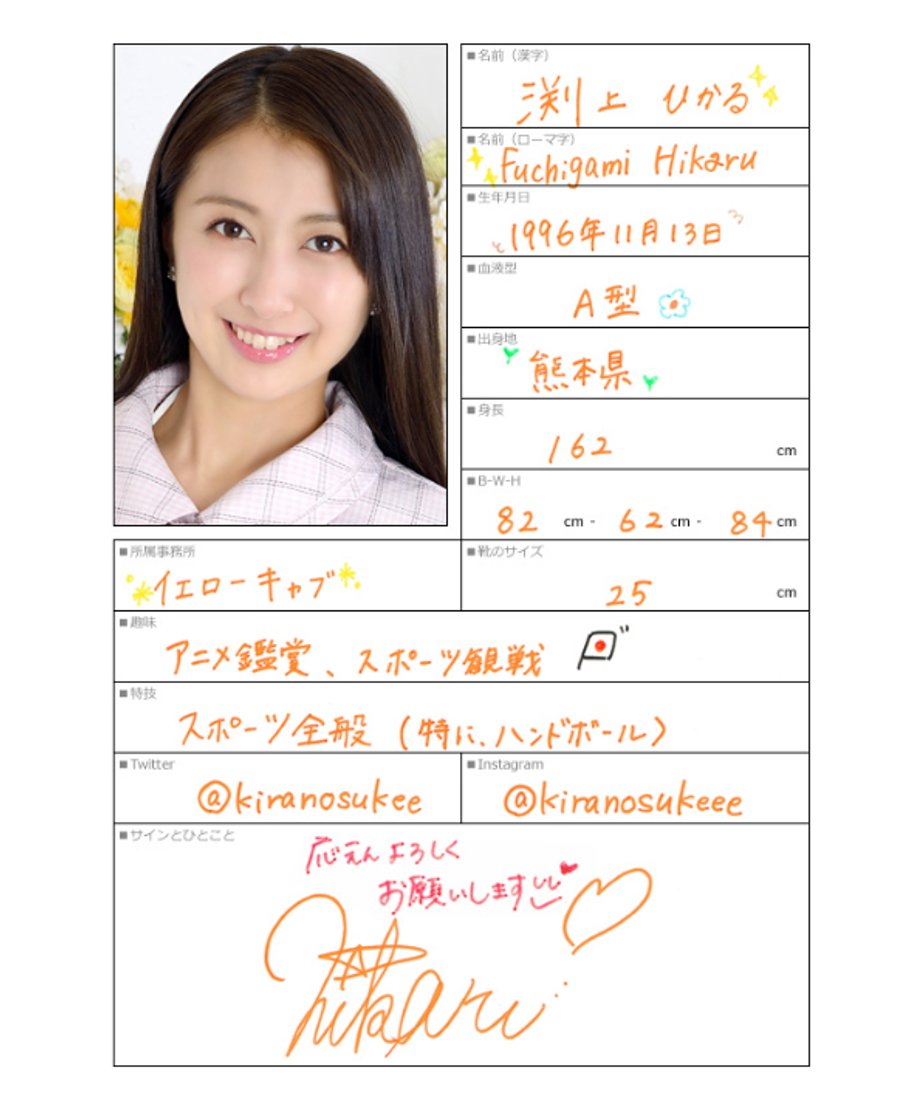 ■名前（漢字）
渕上 ひかる
■名前（ローマ字）
Fuchigami Hikaru
■生年月日
1996年11月13日
■血液型
A型
■出身地
熊本県
■身長
162 cm
■B-W-H
82 cm - 62 cm - 84 cm
■所属事務所
イエローキャブ
■靴のサイズ
25 cm
■趣味
アニメ鑑賞、スポーツ観戦
■特技
スポーツ全般（特に、ハンドボール）
■Twitter
@kiranosukee
■Instagram
@kiranosukeee
■サインとひとこと
応えんよろしく
お願いします
Hikaru